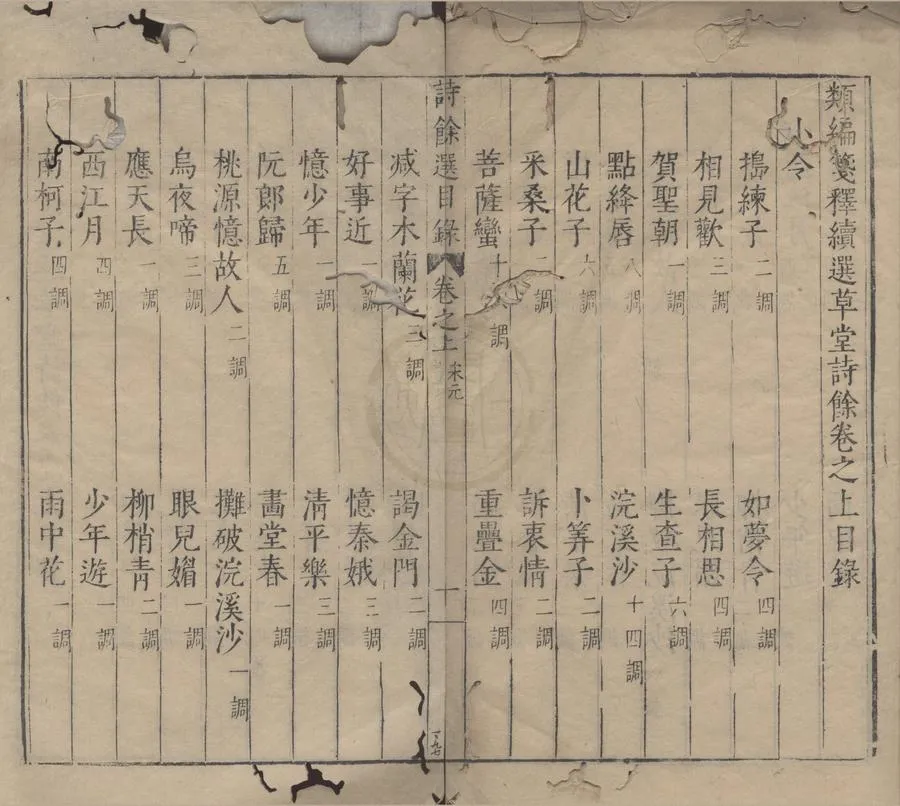 類編箋釋續選草堂詩餘卷之上目錄
小令
搗練子二調 如夢令四調
相見歡三調 長相思四調
賀聖朝一調 生查子六調
點絳唇八調 浣溪沙十四調
山花子六調 卜筭子二調
采桑子二調 訴衷情二調
菩薩蠻十調 重疊金四調
詩餘選目錄 卷之上 一
减字木蘭花三調 謁金門二調
好事近一調 憶秦娥三調
憶少年一調 清平樂三調
阮郎歸五調 畫堂春一調
桃源憶故人二調 攤破浣溪沙一調
烏夜啼三調 眼兒媚一調
應天長一調 柳梢青二調
西江月四調 少年遊一調
南柯子四調 雨中花一調